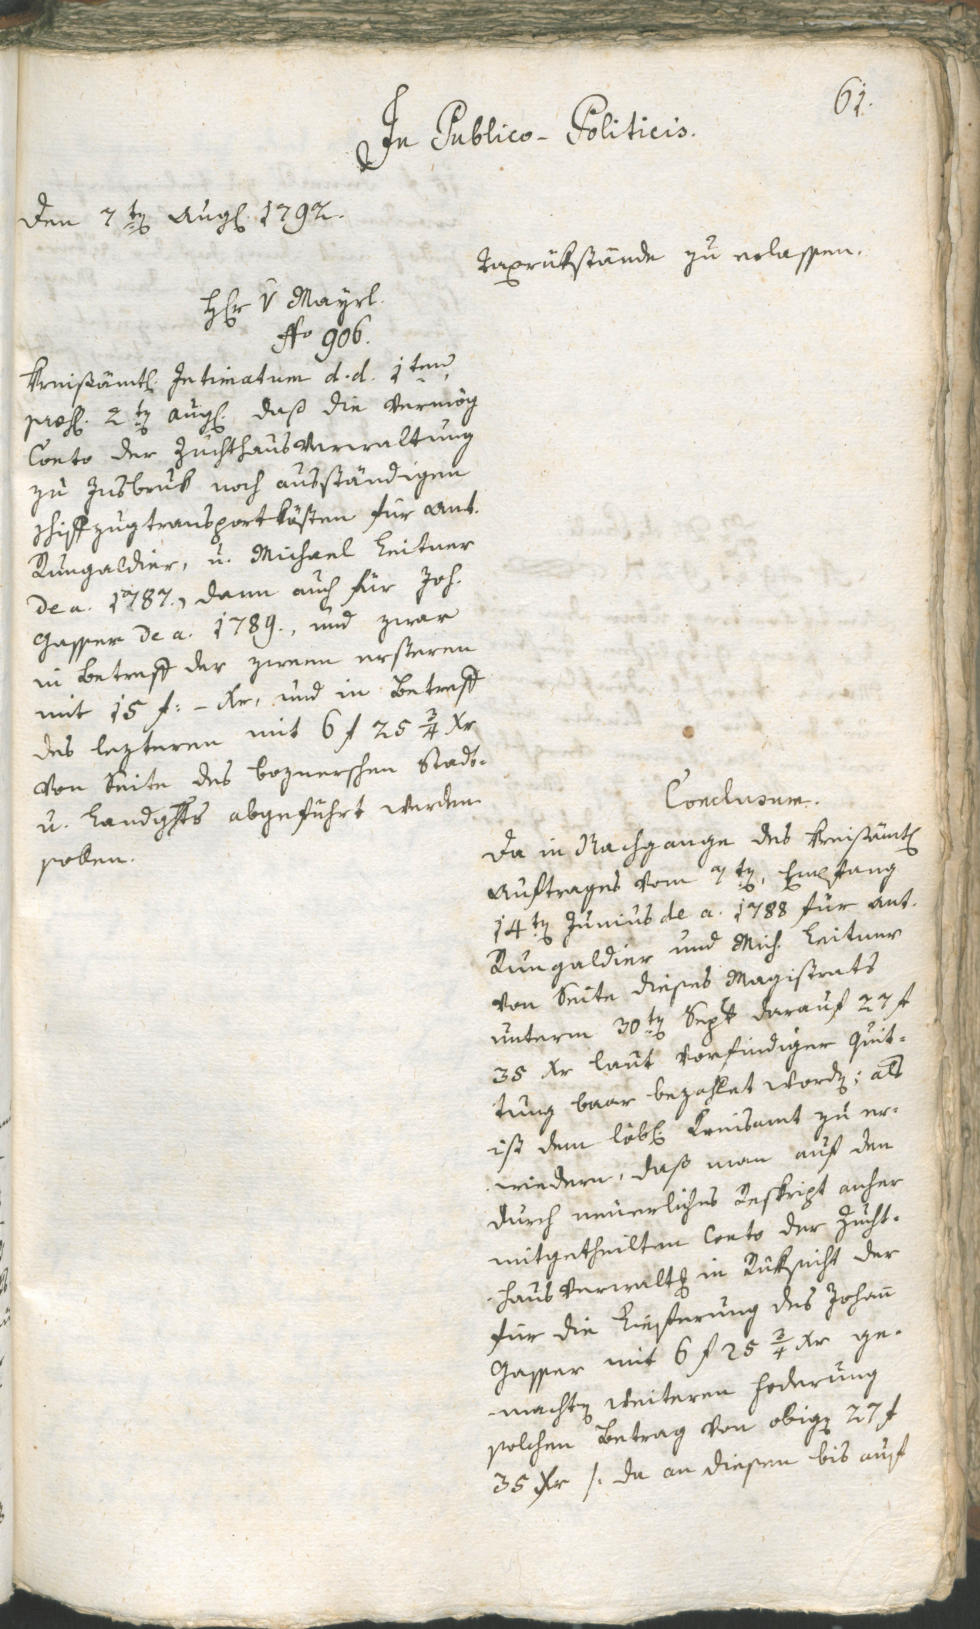 61.
In Publico-Politicis.
Den 7ten Augl. 1792.
Taxrükstände zu erlassen.
Hr v Mayrl.
No 906.
Kreisämtl. Intimatum d. d. 1ten
præs. 2ten Augl. daß die vermög
Conto der Zuchthausverwaltung
zu Insbruk noch ausständigen
Schiffzugtransportkösten für Ant.
Rungaldier, u. Michael Leitner
de a. 1787., dann auch für Joh.
Gasser de a. 1789., und zwar
in Betreff der zween ersteren
mit 15 f: – Xr, und in Betreff
des lezteren mit 6 f 25 3/4 Xr
von Seite des boznerschen Stadt-
u. Landghts abgeführt werden
sollen.
Conclusum.
Da in Nachgange des kreisämtl
Auftrages vom 7ten, Empfang
14ten Junius de a. 1788 für Ant.
Rungaldier und Mich. Leitner
von Seite dieses Magistrats
unterm 30ten Sept darauf 27 f
35 Xr laut vorfindiger Quit-
tung baar bezahlet worden; als
ist dem löbl. Kreisamt zu er-
wiedern, daß man auf den
durch neuerliches Reskript anher
mitgetheilten Conto der Zucht-
hausverwaltg in Rüksicht der
für die Lieferung des Johann
Gasser mit 6 f 25 3/4 Xr ge-
machten weiteren Foderung
solchen Betrag von obigen 27 f
35 Xr /: da an diesen bis auf